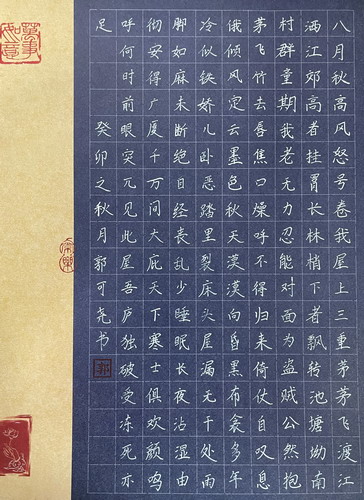 八月秋高风怒号卷我屋上三重茅茅飞渡江
洒江郊高者挂罥长林梢下者飘转池塘坳南
村群童期我老无力忍能对面为盗贼公然抱
茅飞竹去唇焦口燥呼不得归来倚仗自叹息
俄倾风定云墨色秋天漠漠向昏黑布衾多年
冷似铁娇儿卧恶踏里裂床头屋漏无干处雨
脚如麻未断绝自经丧乱少睡眠长夜沾湿由
彻安得广厦千万间大庇天下寒士俱欢颜鸣
呼何时前眼突兀见此屋吾庐独破受冻死亦
足
癸卯之秋月郭可尧书
萬事如意